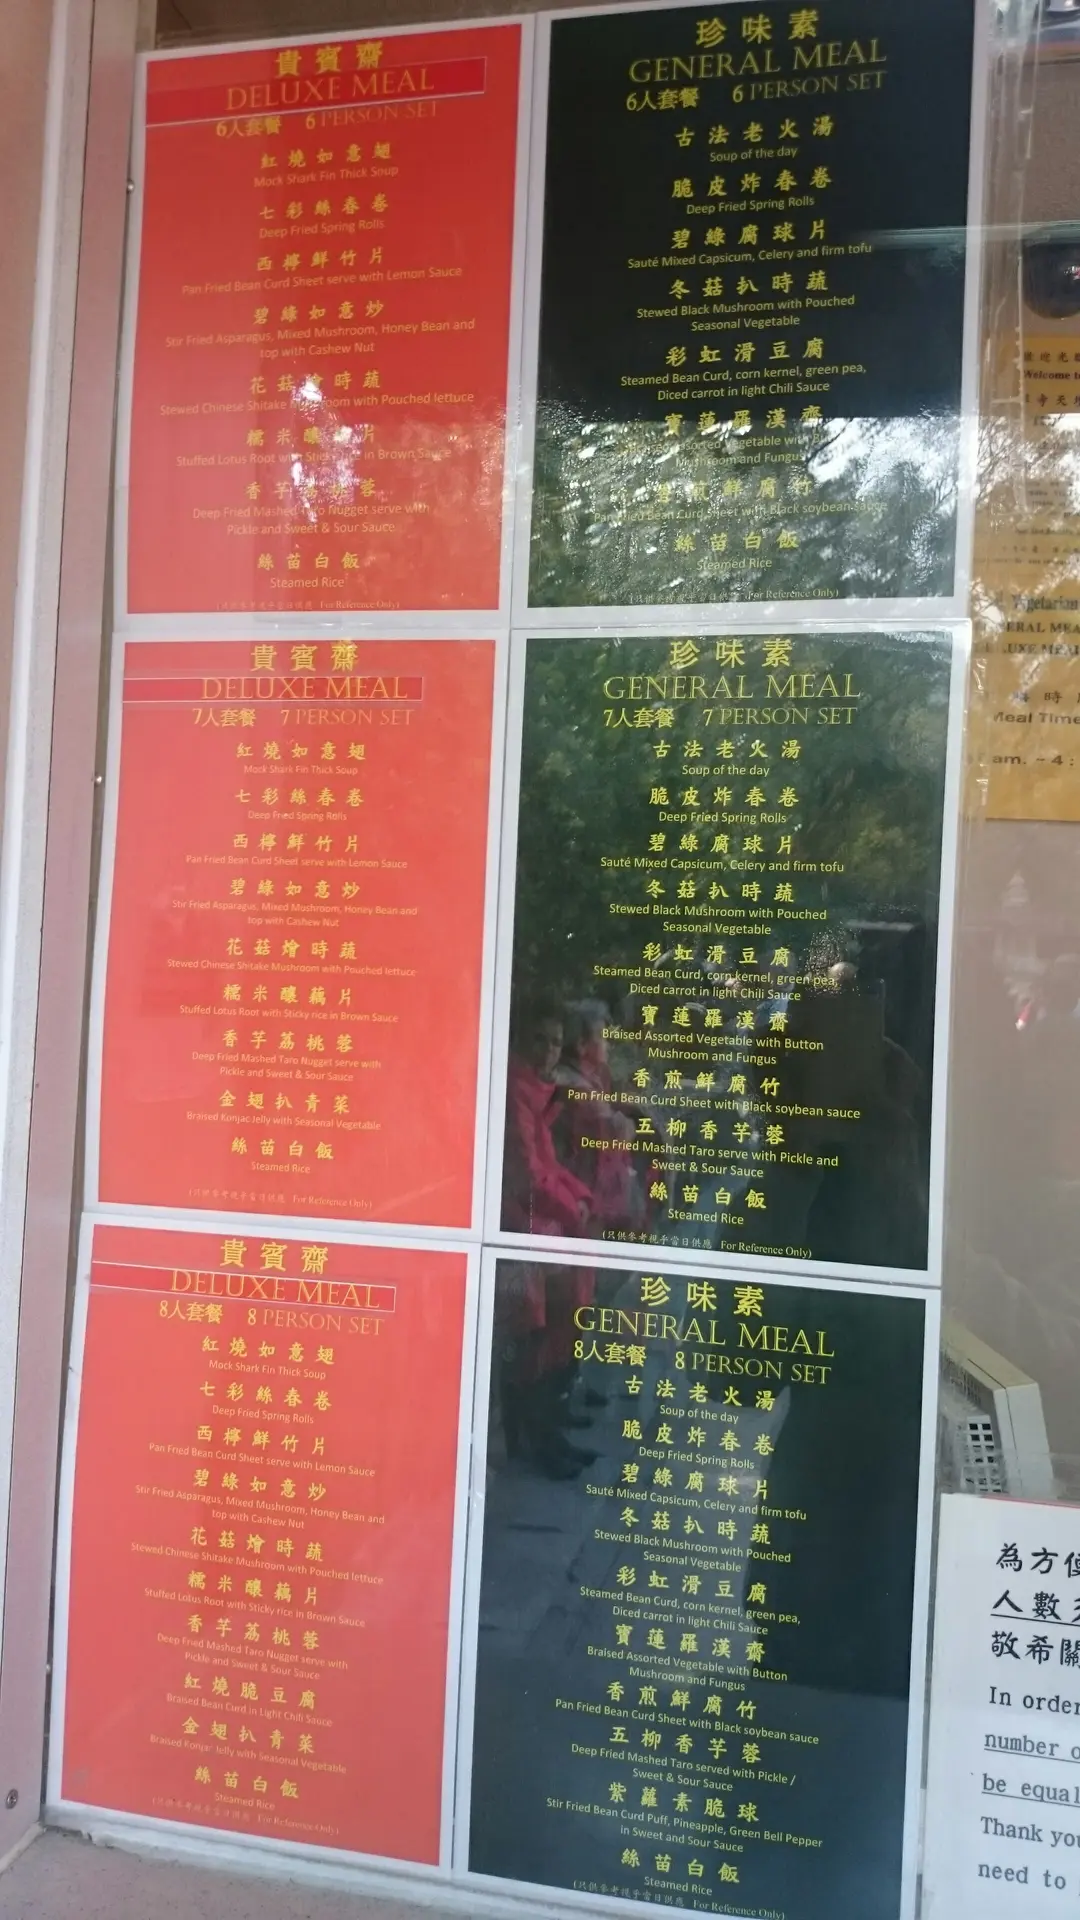 貴賓齋
DELUXE MEAL
6人套餐 6 PERSON SET
紅燒如意翅
Mock Shark Fin Thick Soup
七彩絲春卷
Deep Fried Spring Rolls
西檸鮮竹片
Pan Fried Bean Curd Sheet serve with Lemon Sauce
碧綠如意炒
Stir Fried Asparagus, Mixed Mushroom, Honey Bean and
top with Cashew Nut
花菇燴時蔬
Stewed Chinese Shitake Mushroom with Pouched lettuce
糯米釀藕片
Stuffed Lotus Root with Sticky rice in Brown Sauce
香芋荔桃蓉
Deep Fried Mashed Taro Nugget serve with
Pickle and Sweet & Sour Sauce
絲苗白飯
Steamed Rice
(只供參考視乎當日供應 For Reference Only)
珍味素
GENERAL MEAL
6人套餐 6 PERSON SET
古法老火湯
Soup of the day
脆皮炸春卷
Deep Fried Spring Rolls
碧綠腐球片
Sauté Mixed Capsicum, Celery and firm tofu
冬菇扒時蔬
Stewed Black Mushroom with Pouched
Seasonal Vegetable
彩虹滑豆腐
Steamed Bean Curd, corn kernel, green pea,
Diced carrot in light Chili Sauce
寶蓮羅漢齋
Assorted Vegetable with
Mushroom and Fungus
煎鮮腐竹
Pan Fried Bean Curd Sheet with Black soybean sauce
絲苗白飯
Steamed Rice
(只供參考視乎當日供應 For Reference Only)
貴賓齋
DELUXE MEAL
7人套餐 7 PERSON SET
紅燒如意翅
Mock Shark Fin Thick Soup
七彩絲春卷
Deep Fried Spring Rolls
西檸鮮竹片
Pan Fried Bean Curd Sheet serve with Lemon Sauce
碧綠如意炒
Stir Fried Asparagus, Mixed Mushroom, Honey Bean and
top with Cashew Nut
花菇燴時蔬
Stewed Chinese Shitake Mushroom with Pouched lettuce
糯米釀藕片
Stuffed Lotus Root with Sticky rice in Brown Sauce
香芋荔桃蓉
Deep Fried Mashed Taro Nugget serve with
Pickle and Sweet & Sour Sauce
金翅扒青菜
Braised Konjac Jelly with Seasonal Vegetable
絲苗白飯
Steamed Rice
(只供參考視乎當日供應 For Reference Only)
珍味素
GENERAL MEAL
7人套餐 7 PERSON SET
古法老火湯
Soup of the day
脆皮炸春卷
Deep Fried Spring Rolls
碧綠腐球片
Sauté Mixed Capsicum, Celery and firm tofu
冬菇扒時蔬
Stewed Black Mushroom with Pouched
Seasonal Vegetable
彩虹滑豆腐
Steamed Bean Curd, corn kernel, green pea,
Diced carrot in light Chili Sauce
寶蓮羅漢齋
Braised Assorted Vegetable with Button
Mushroom and Fungus
香煎鮮腐竹
Pan Fried Bean Curd Sheet with Black soybean sauce
五柳香芋蓉
Deep Fried Mashed Taro serve with Pickle and
Sweet & Sour Sauce
絲苗白飯
Steamed Rice
(只供參考視乎當日供應 For Reference Only)
貴賓齋
DELUXE MEAL
8人套餐 8 PERSON SET
紅燒如意翅
Mock Shark Fin Thick Soup
七彩絲春卷
Deep Fried Spring Rolls
西檸鮮竹片
Pan Fried Bean Curd Sheet serve with Lemon Sauce
碧綠如意炒
Stir Fried Asparagus, Mixed Mushroom, Honey Bean and
top with Cashew Nut
花菇燴時蔬
Stewed Chinese Shitake Mushroom with Pouched lettuce
糯米釀藕片
Stuffed Lotus Root with Sticky rice in Brown Sauce
香芋荔桃蓉
Deep Fried Mashed Taro Nugget serve with
Pickle and Sweet & Sour Sauce
紅燒脆豆腐
Braised Bean Curd in Light Chili Sauce
金翅扒青菜
Braised Konjac Jelly with Seasonal Vegetable
絲苗白飯
Steamed Rice
(只供參考視乎當日供應 For Reference Only)
珍味素
GENERAL MEAL
8人套餐 8 PERSON SET
古法老火湯
Soup of the day
脆皮炸春卷
Deep Fried Spring Rolls
碧綠腐球片
Sauté Mixed Capsicum, Celery and firm tofu
冬菇扒時蔬
Stewed Black Mushroom with Pouched
Seasonal Vegetable
彩虹滑豆腐
Steamed Bean Curd, corn kernel, green pea,
Diced carrot in light Chili Sauce
寶蓮羅漢齋
Braised Assorted Vegetable with Button
Mushroom and Fungus
香煎鮮腐竹
Pan Fried Bean Curd Sheet with Black soybean sauce
五柳香芋蓉
Deep Fried Mashed Taro served with Pickle /
Sweet & Sour Sauce
紫蘿素脆球
Stir Fried Bean Curd Puff, Pineapple, Green Bell Pepper
in Sweet and Sour Sauce
絲苗白飯
Steamed Rice
(只供參考視乎當日供應 For Reference Only)
Welcome to
Vegetarian
ERAL MEA
UXE MEAL
時
Meal Time
am. - 4 :
為方便
人數
敬希
In order
number o
be equal
Thank you
need to